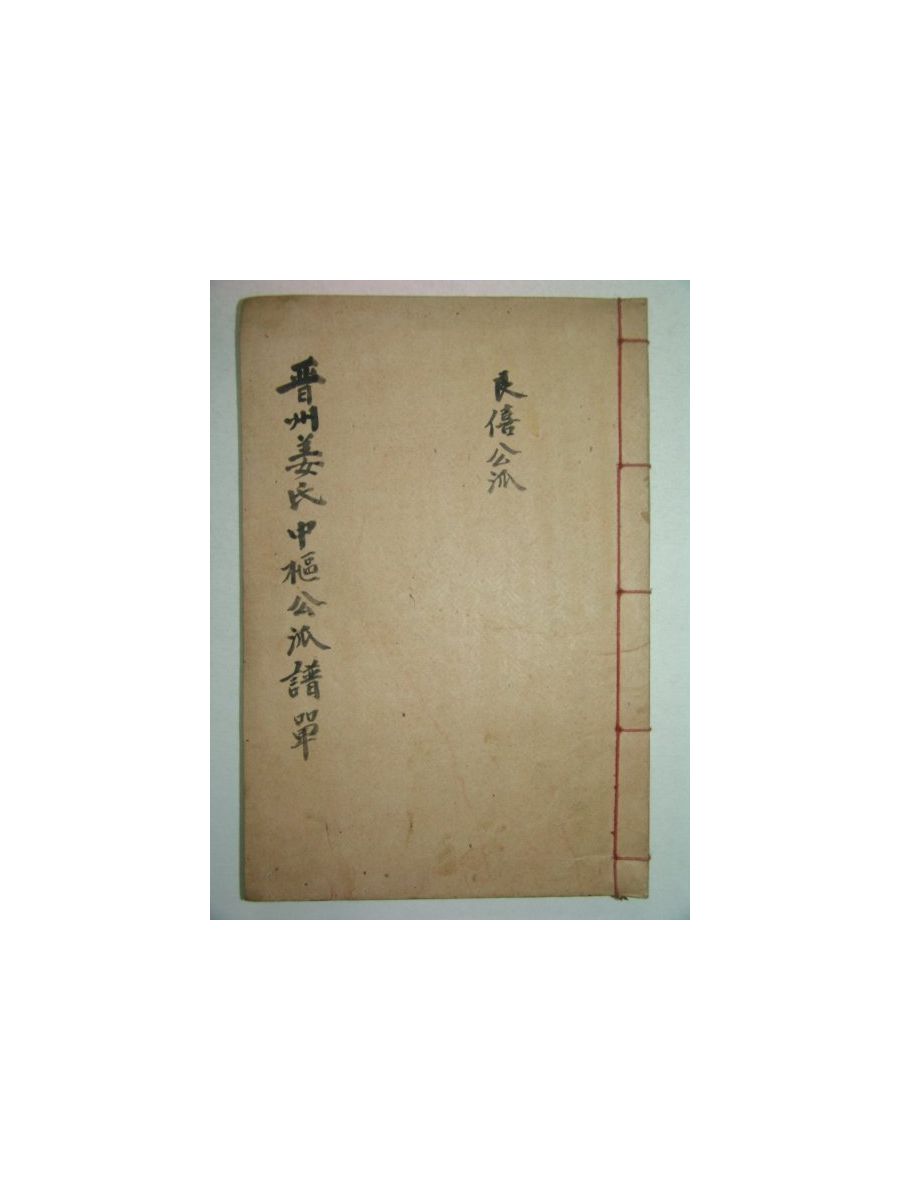 良僖公派
晋州姜氏中樞公派譜單